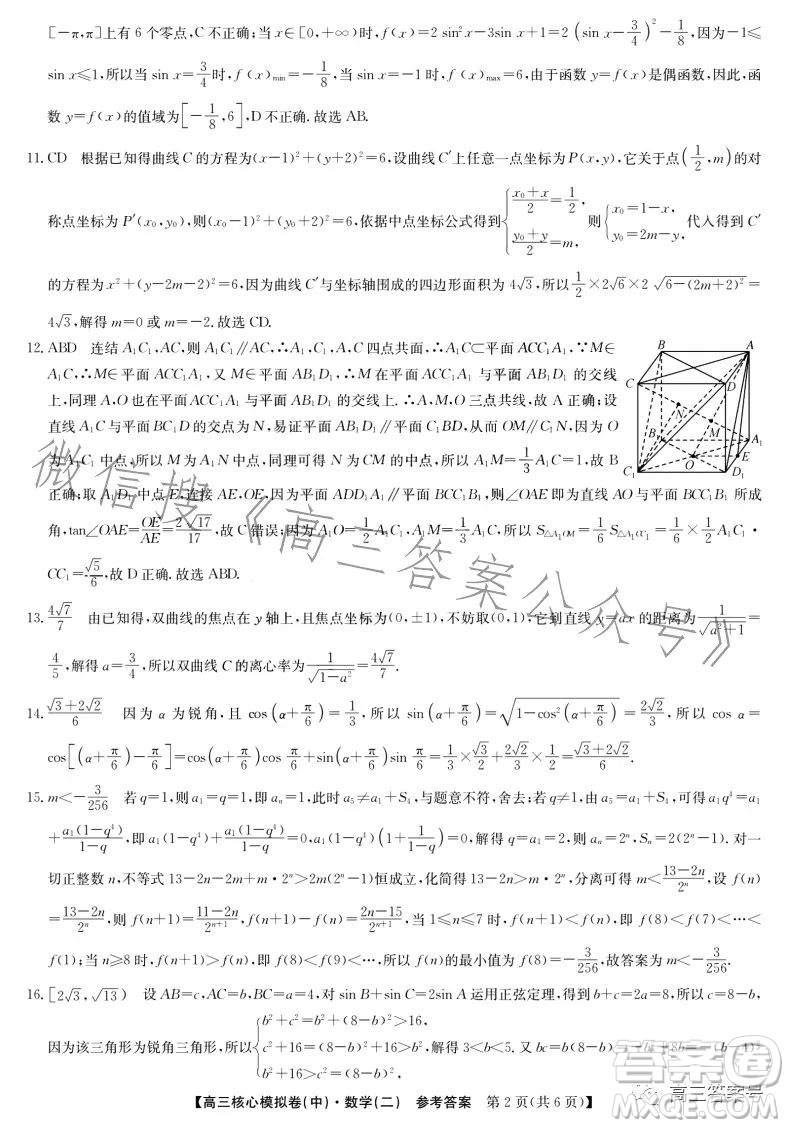 [-π,π]上有 6 个零点,C 不正确;当 x∈[0,+∞)时,f(x)=2 sin²x-3sin x+1=2(sin x-3/4)²-1/8,因为-1≤
sin x≤1,所以当 sin x=3/4时,f(x)min=-1/8,当 sin x=-1 时,f(x)max=6,由于函数 y=f(x)是偶函数,因此,函
数 y=f(x)的值域为[-1/8,6],D 不正确.故选 AB.
11.CD 根据已知得曲线 C 的方程为(x-1)²+(y+2)²=6,设曲线 C′上任意一点坐标为 P(x,y),它关于点(1/2,m)的对
称点坐标为 P′(x₀,y₀),则(x₀-1)²+(y₀+2)²=6,依据中点坐标公式得到{(x₀+x)/2=1/2, (y₀+y)/2=m, 则{x₀=1-x, y₀=2m-y, 代入得到 C′
的方程为 x²+(y-2m-2)²=6,因为曲线 C′与坐标轴围成的四边形面积为 4√3,所以1/2×2√6×2 √(6-(2m+2)²)=
4√3,解得 m=0 或 m=-2.故选 CD.
12.ABD 连结 A₁C₁,AC,则 A₁C₁∥AC,∴A₁,C₁,A,C 四点共面,∴A₁C⊂平面 ACC₁A₁,∵M∈
A₁C,∴M∈平面 ACC₁A₁,又 M∈平面 AB₁D₁,∴M 在平面 ACC₁A₁ 与平面 AB₁D₁ 的交线
上,同理 A,O 也在平面 ACC₁A₁ 与平面 AB₁D₁ 的交线上.∴A,M,O 三点共线,故 A 正确;设
直线 A₁C 与平面 BC₁D 的交点为 N,易证平面 AB₁D₁∥平面 C₁BD,从而 OM∥C₁N,因为 O
为 A₁C₁ 中点,所以 M 为 A₁N 中点,同理可得 N 为 CM 的中点,所以 A₁M=1/3 A₁C=1,故 B
正确;取 A₁D₁ 中点 E,连接 AE,OE,因为平面 ADD₁A₁∥平面 BCC₁B₁,则∠OAE 即为直线 AO 与平面 BCC₁B₁ 所成
角,tan∠OAE=OE/AE=2√17/17,故 C 错误;因为 A₁O=1/2 A₁C₁,A₁M=1/3 A₁C,所以 S△A₁OM=1/6 S△A₁CC₁=1/6×1/2 A₁C₁·
CC₁=√5/6,故 D 正确.故选 ABD.
B A C D N M B₁ A₁ O E C₁ D₁
13.4√7/7 由已知得,双曲线的焦点在 y 轴上,且焦点坐标为(0,±1),不妨取(0,1),它到直线 y=ax 的距离为1/√(a²+1)=
4/5,解得 a=3/4,所以双曲线 C 的离心率为1/√(1-a²)=4√7/7.
14.(√3+2√2)/6 因为 α 为锐角,且 cos(α+π/6)=1/3,所以 sin(α+π/6)=√(1-cos²(α+π/6))=2√2/3,所以 cos α=
cos[(α+π/6)-π/6]=cos(α+π/6)cos π/6+sin(α+π/6)sin π/6=1/3×√3/2+2√2/3×1/2=(√3+2√2)/6.
15.m<-3/256 若 q=1,则 a₁=q=1,即 aₙ=1,此时 a₅≠a₁+S₄,与题意不符,舍去;若 q≠1,由 a₅=a₁+S₄,可得 a₁q⁴=a₁
+a₁(1-q⁴)/(1-q),即 a₁(1-q⁴)+a₁(1-q⁴)/(1-q)=0,a₁(1-q⁴)(1+1/(1-q))=0,解得 q=a₁=2,则 aₙ=2ⁿ,Sₙ=2(2ⁿ-1).对一
切正整数 n,不等式 13-2n-2m+m·2ⁿ>2m(2ⁿ-1)恒成立,化简得 13-2n>m·2ⁿ,分离可得 m<(13-2n)/2ⁿ,设 f(n)
=(13-2n)/2ⁿ,则 f(n+1)=(11-2n)/2ⁿ⁺¹,f(n+1)-f(n)=(2n-15)/2ⁿ⁺¹,当 1≤n≤7 时,f(n+1)<f(n),即 f(8)<f(7)<…<
f(1);当 n≥8 时,f(n+1)>f(n),即 f(8)<f(9)<…,所以 f(n)的最小值为 f(8)=-3/256,故答案为 m<-3/256.
16.[2√3,√13) 设 AB=c,AC=b,BC=a=4,对 sin B+sin C=2sin A 运用正弦定理,得到 b+c=2a=8,所以 c=8-b,
因为该三角形为锐角三角形,所以{b²+c²=b²+(8-b)²>16, c²+16=(8-b)²+16>b², b²+16>c²=(8-b)², 解得 3<b<5.又 bc=b(8-b)=-b²+8b=-(b-4)²
【高三核心模拟卷(中)·数学(二) 参考答案 第 2 页(共 6 页)】
微信搜《高三答案公众号》
高三答案号